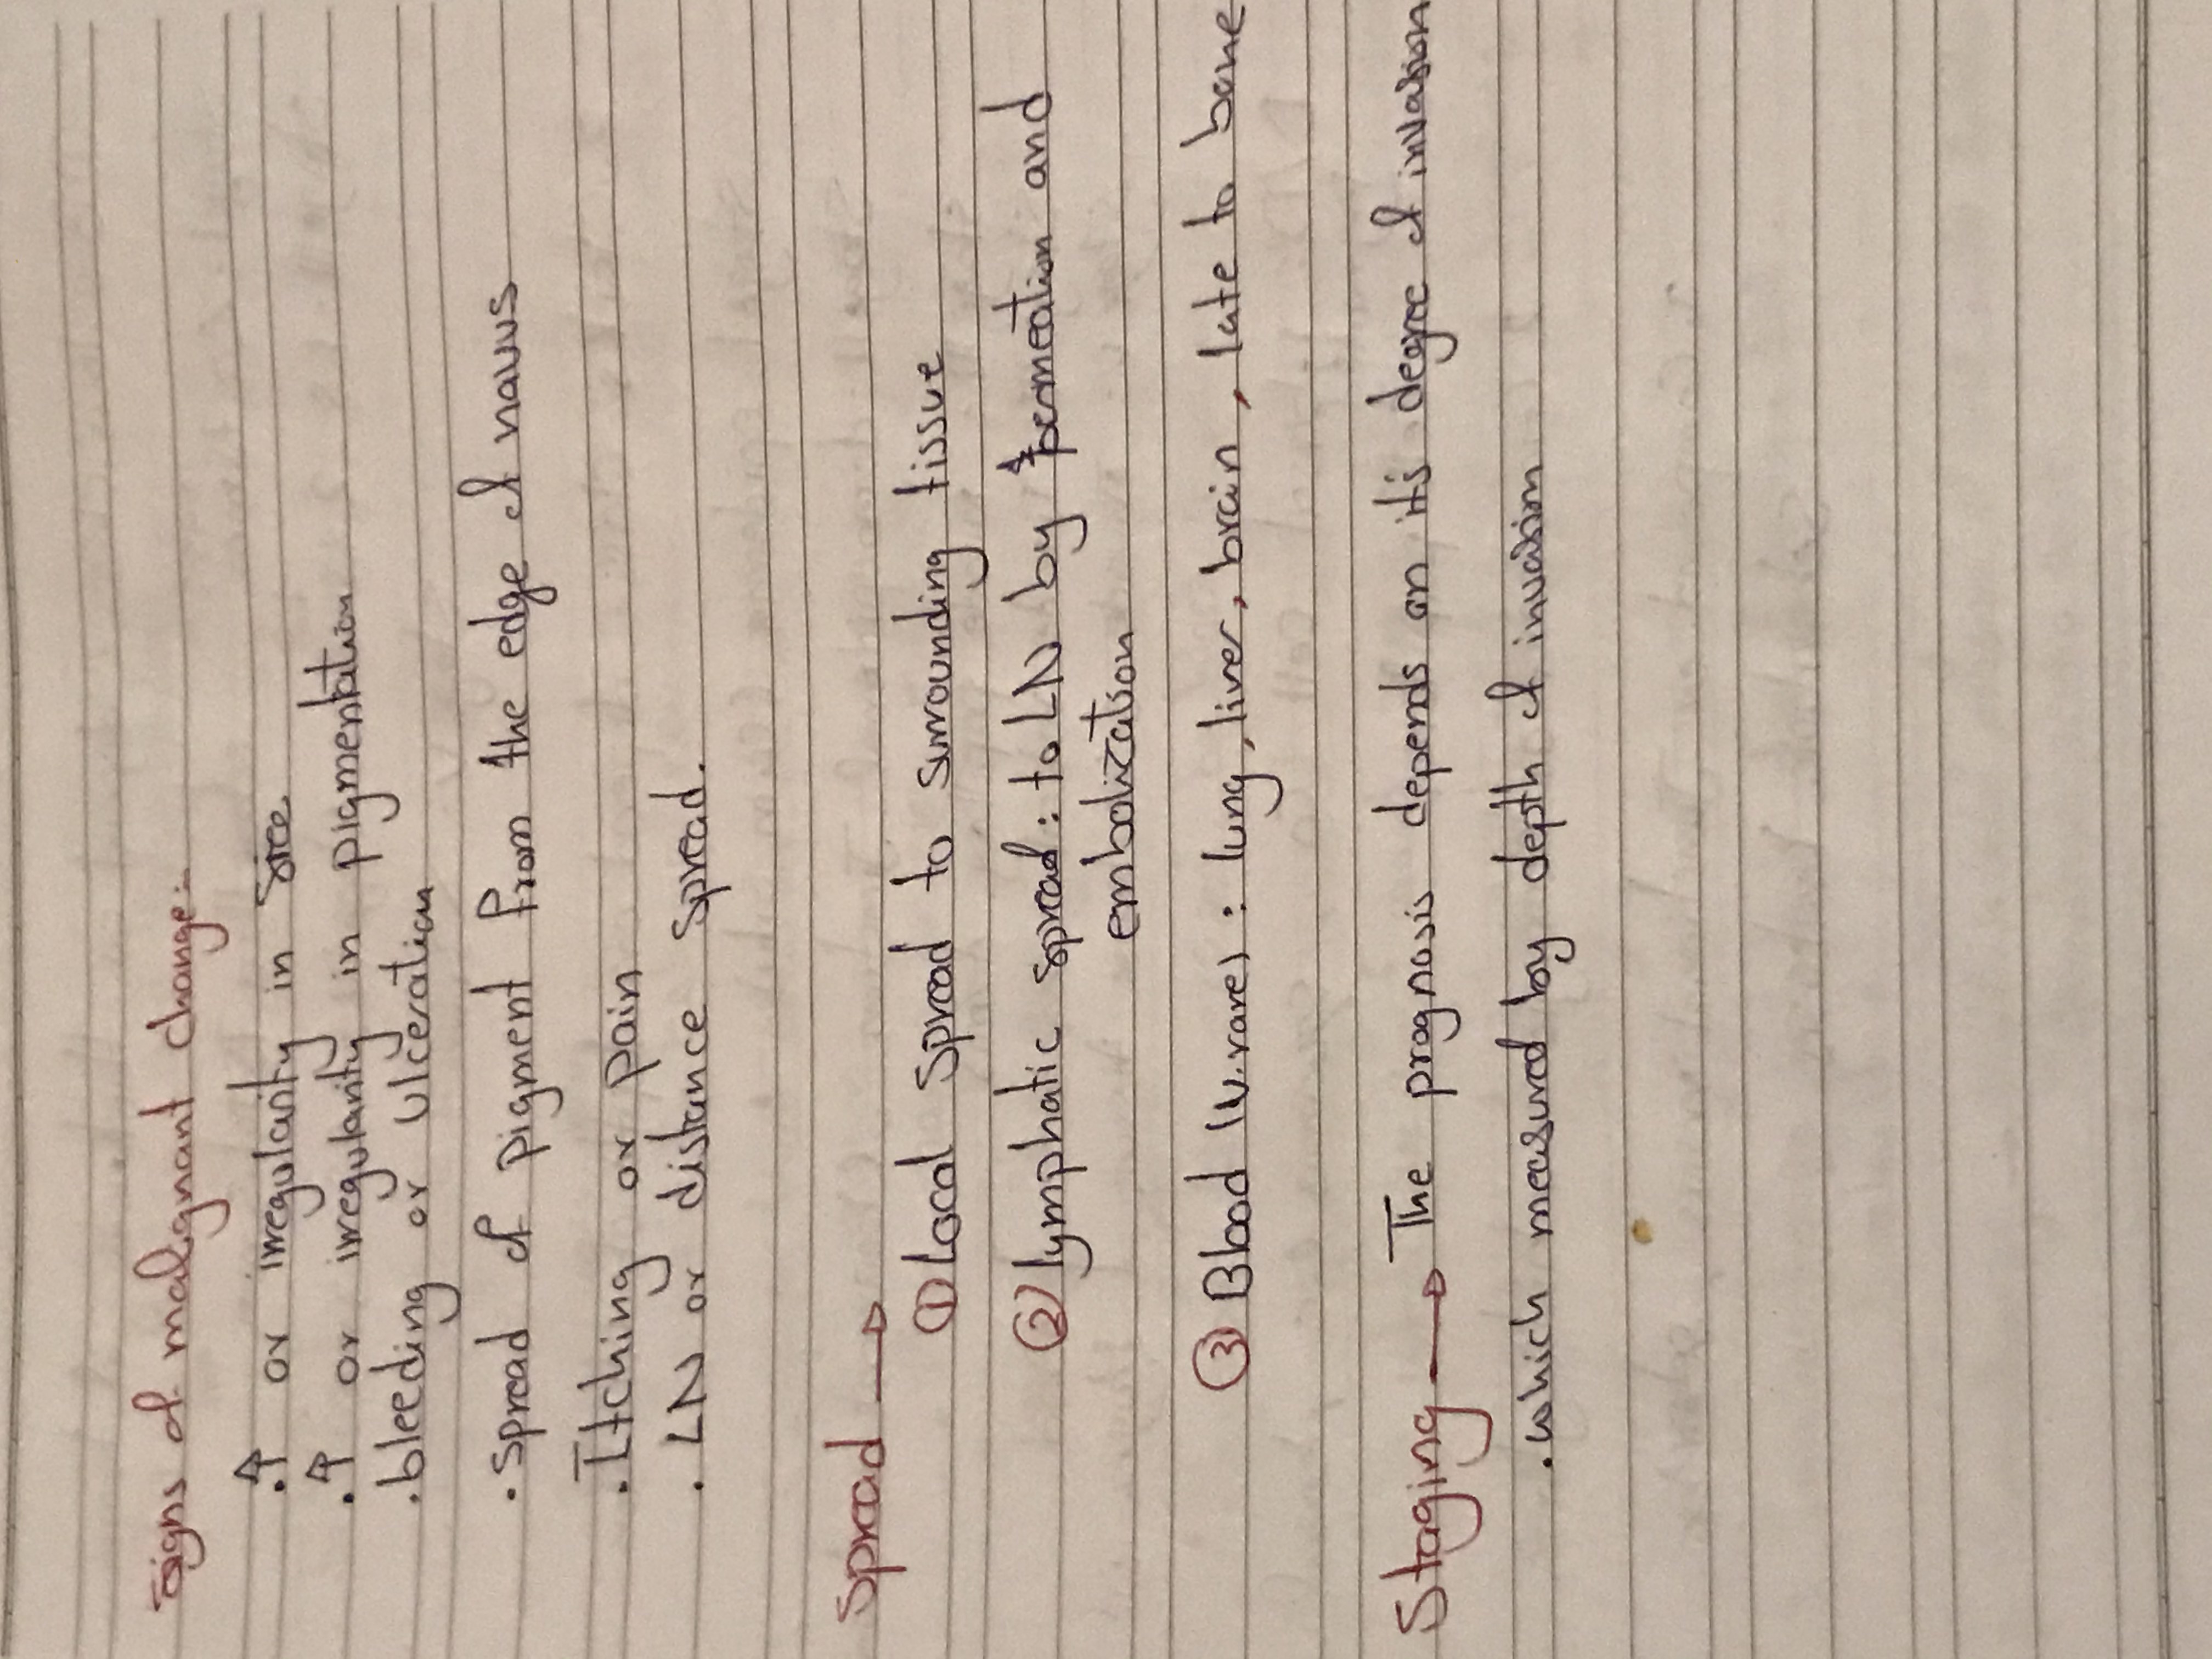 Signs of malignant change:-
.↑ or irregularity in size
.↑ or irregularity in pigmentation
.bleeding or ulceration
. Spread of pigment from the edge of navus
. Itching or pain
. LN or distance spread.
Spread →
① Local Spread to surrounding tissue
② lymphatic spread: to LN by permeation and
embolization
③ Blood (v.rare): lung, liver, brain, late to bone
Staging → The prognosis depends on its degree of invasion
. which measured by depth of invasion